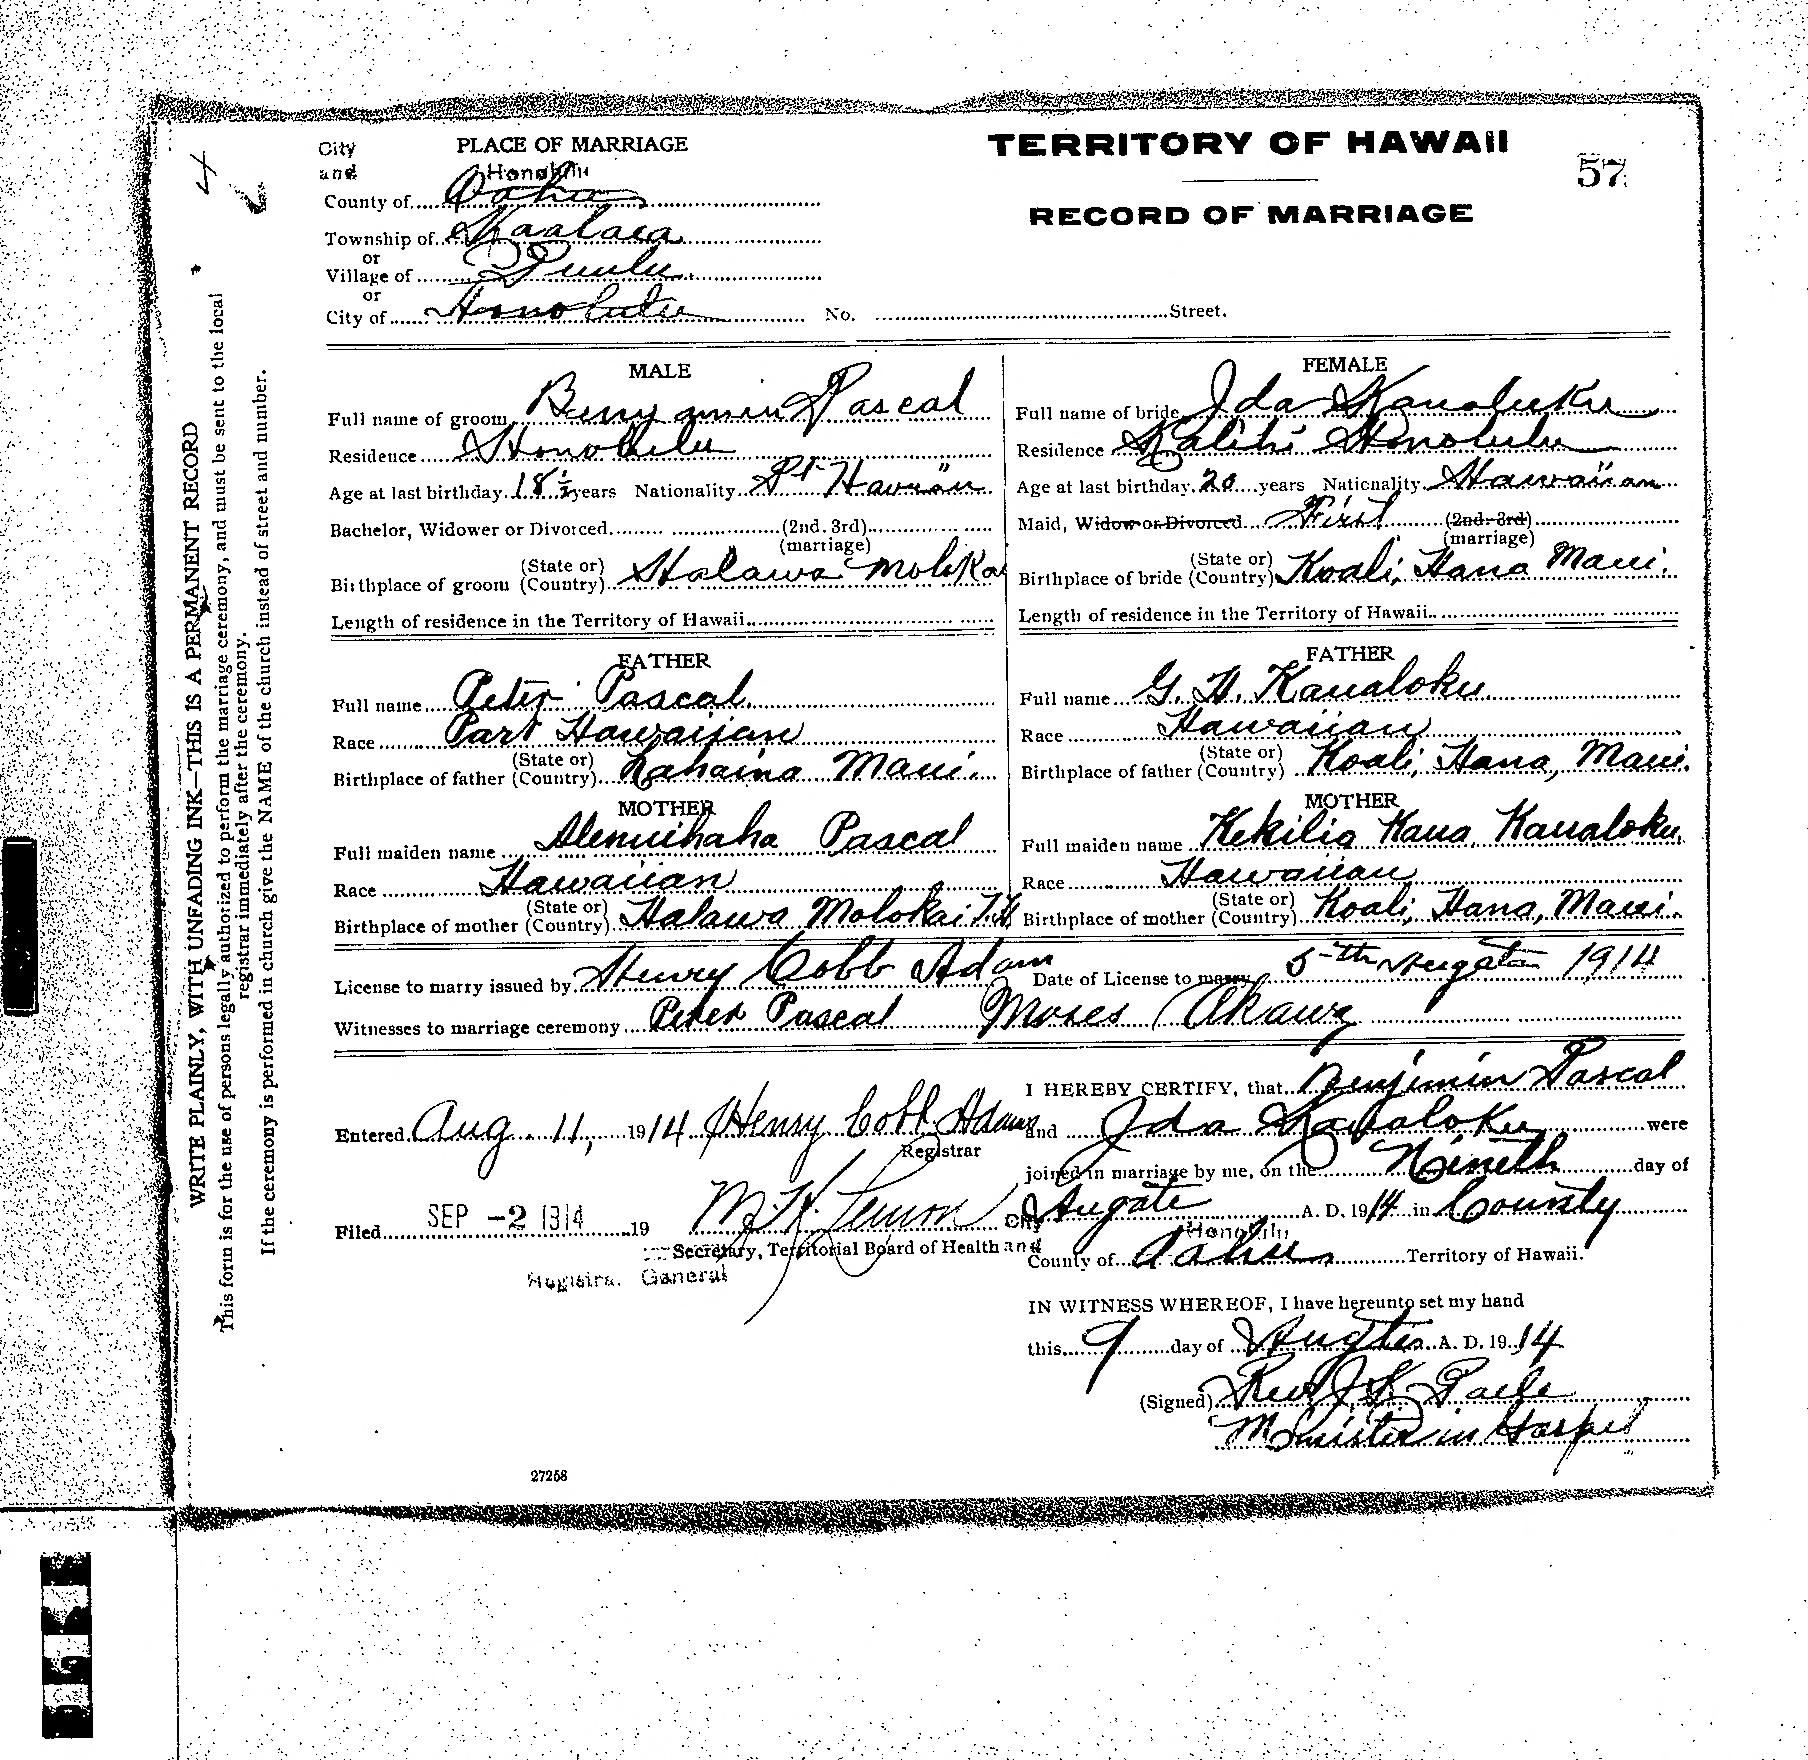 TERRITORY OF HAWAII
57
RECORD OF MARRIAGE
City PLACE OF MARRIAGE
and Honolulu
County of Oahu
Township of Kaalaea
or
Village of
or
City of Honolulu No. Street.
MALE
Full name of groom Benjamin Pascal
Residence Honolulu
Age at last birthday 18 ½ years Nationality Pt Hawaiian
Bachelor, Widower or Divorced (2nd. 3rd)
(marriage)
Birthplace of groom (State or) (Country) Halawa Moloka
Length of residence in the Territory of Hawaii
FATHER
Full name Peter Pascal
Race Part Hawaiian
Birthplace of father (State or) (Country) Lahaina Maui.
MOTHER
Full maiden name Alenuihaha Pascal
Race Hawaiian
Birthplace of mother (State or) (Country) Halawa Molokai T.H
FEMALE
Full name of bride Ida Kanaluku
Residence Kalihi Honolulu
Age at last birthday 20 years Nationality Hawaiian
Maid, Widow or Divorced First (2nd. 3rd)
(marriage)
Birthplace of bride (State or) (Country) Koali, Hana Maui.
Length of residence in the Territory of Hawaii
FATHER
Full name G. H. Kaualoku
Race Hawaiian
Birthplace of father (State or) (Country) Koali, Hana, Maui.
MOTHER
Full maiden name Kekilia Kaua, Kaualoku,
Race Hawaiian
Birthplace of mother (State or) (Country) Koali, Hana, Maui.
License to marry issued by Henry Cobb Adam Date of License to marry 5th 1914
Witnesses to marriage ceremony Peter Pascal Moses
Entered Aug. 11, 1914 Henry Cobb Adams
Registrar
Filed SEP -2 1914 19
Secretary, Territorial Board of Health
Registrar General
I HEREBY CERTIFY, that Benjimin Pascal
and Ida Kaualoku were
joined in marriage by me, on the Nineth day of
Augate A. D. 1914 in County
City Honolulu
and
County of Oahu Territory of Hawaii.
IN WITNESS WHEREOF, I have hereunto set my hand
this 9 day of A. D. 1914
(Signed) Rev J. K. Paele
Minister in Gospel
27258
WRITE PLAINLY, WITH UNFADING INK—THIS IS A PERMANENT RECORD
This form is for the use of persons legally authorized to perform the marriage ceremony, and must be sent to the local
registrar immediately after the ceremony.
If the ceremony is performed in church give the NAME of the church instead of street and number.